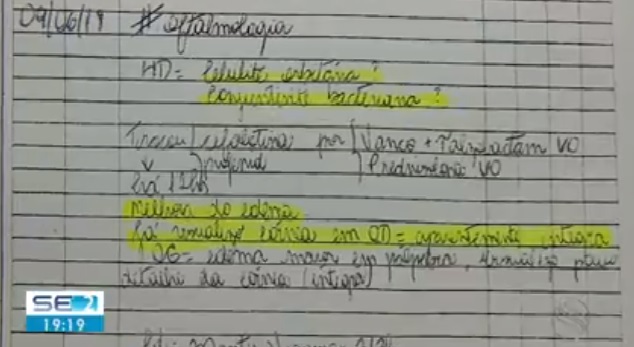 09/06/19 # oftalmologia
HD= Celulite orbitária?
Conjuntivite bacteriana?
Trocou cefalotina por Vanco + Tazobactam VO
↓ Prednisona VO
há 12h
melhora do edema
já visualizo córnea em OD= aparentemente íntegra
OE= edema maior em pálpebra, visualizo pouco
detalhe da córnea (íntegra)
SE2
19:19